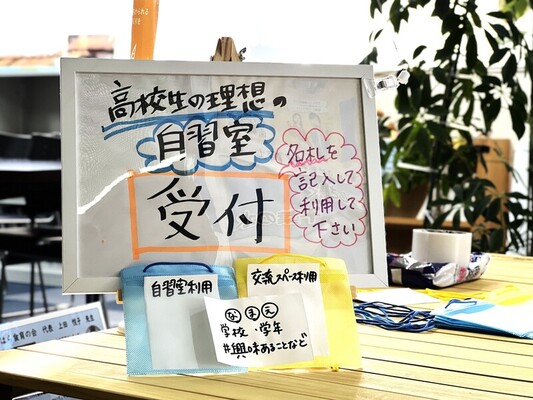 高校生の理想の
自習室
受付
名札を
記入して
利用して
下さい
自習室利用
交流スペース利用
なまえ
学校・学年
#興味あることなど